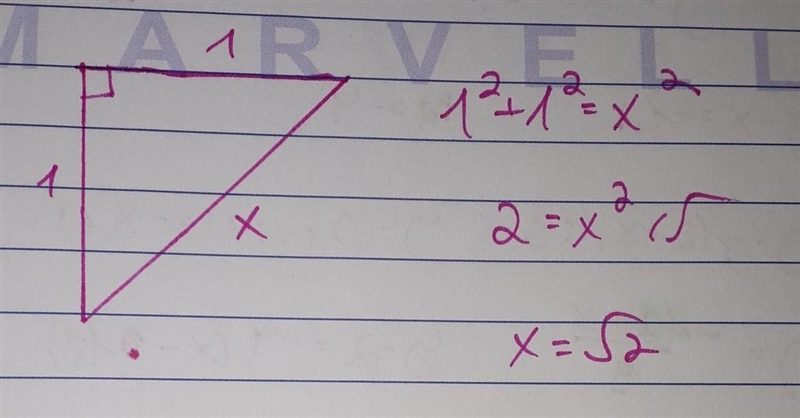 MARVELL
1
1
x
1² + 1² = x²
2 = x² /√
x = √2